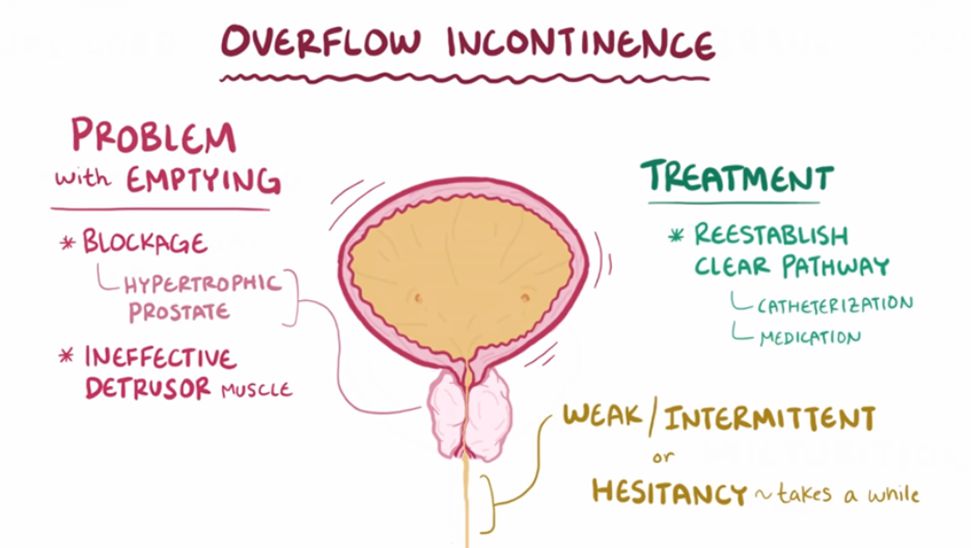 OVERFLOW INCONTINENCE
PROBLEM
with EMPTYING
* BLOCKAGE
HYPERTROPHIC
PROSTATE
* INEFFECTIVE
DETRUSOR MUSCLE
TREATMENT
* REESTABLISH
CLEAR PATHWAY
CATHETERIZATION
MEDICATION
WEAK/INTERMITTENT
or
HESITANCY ~takes a while